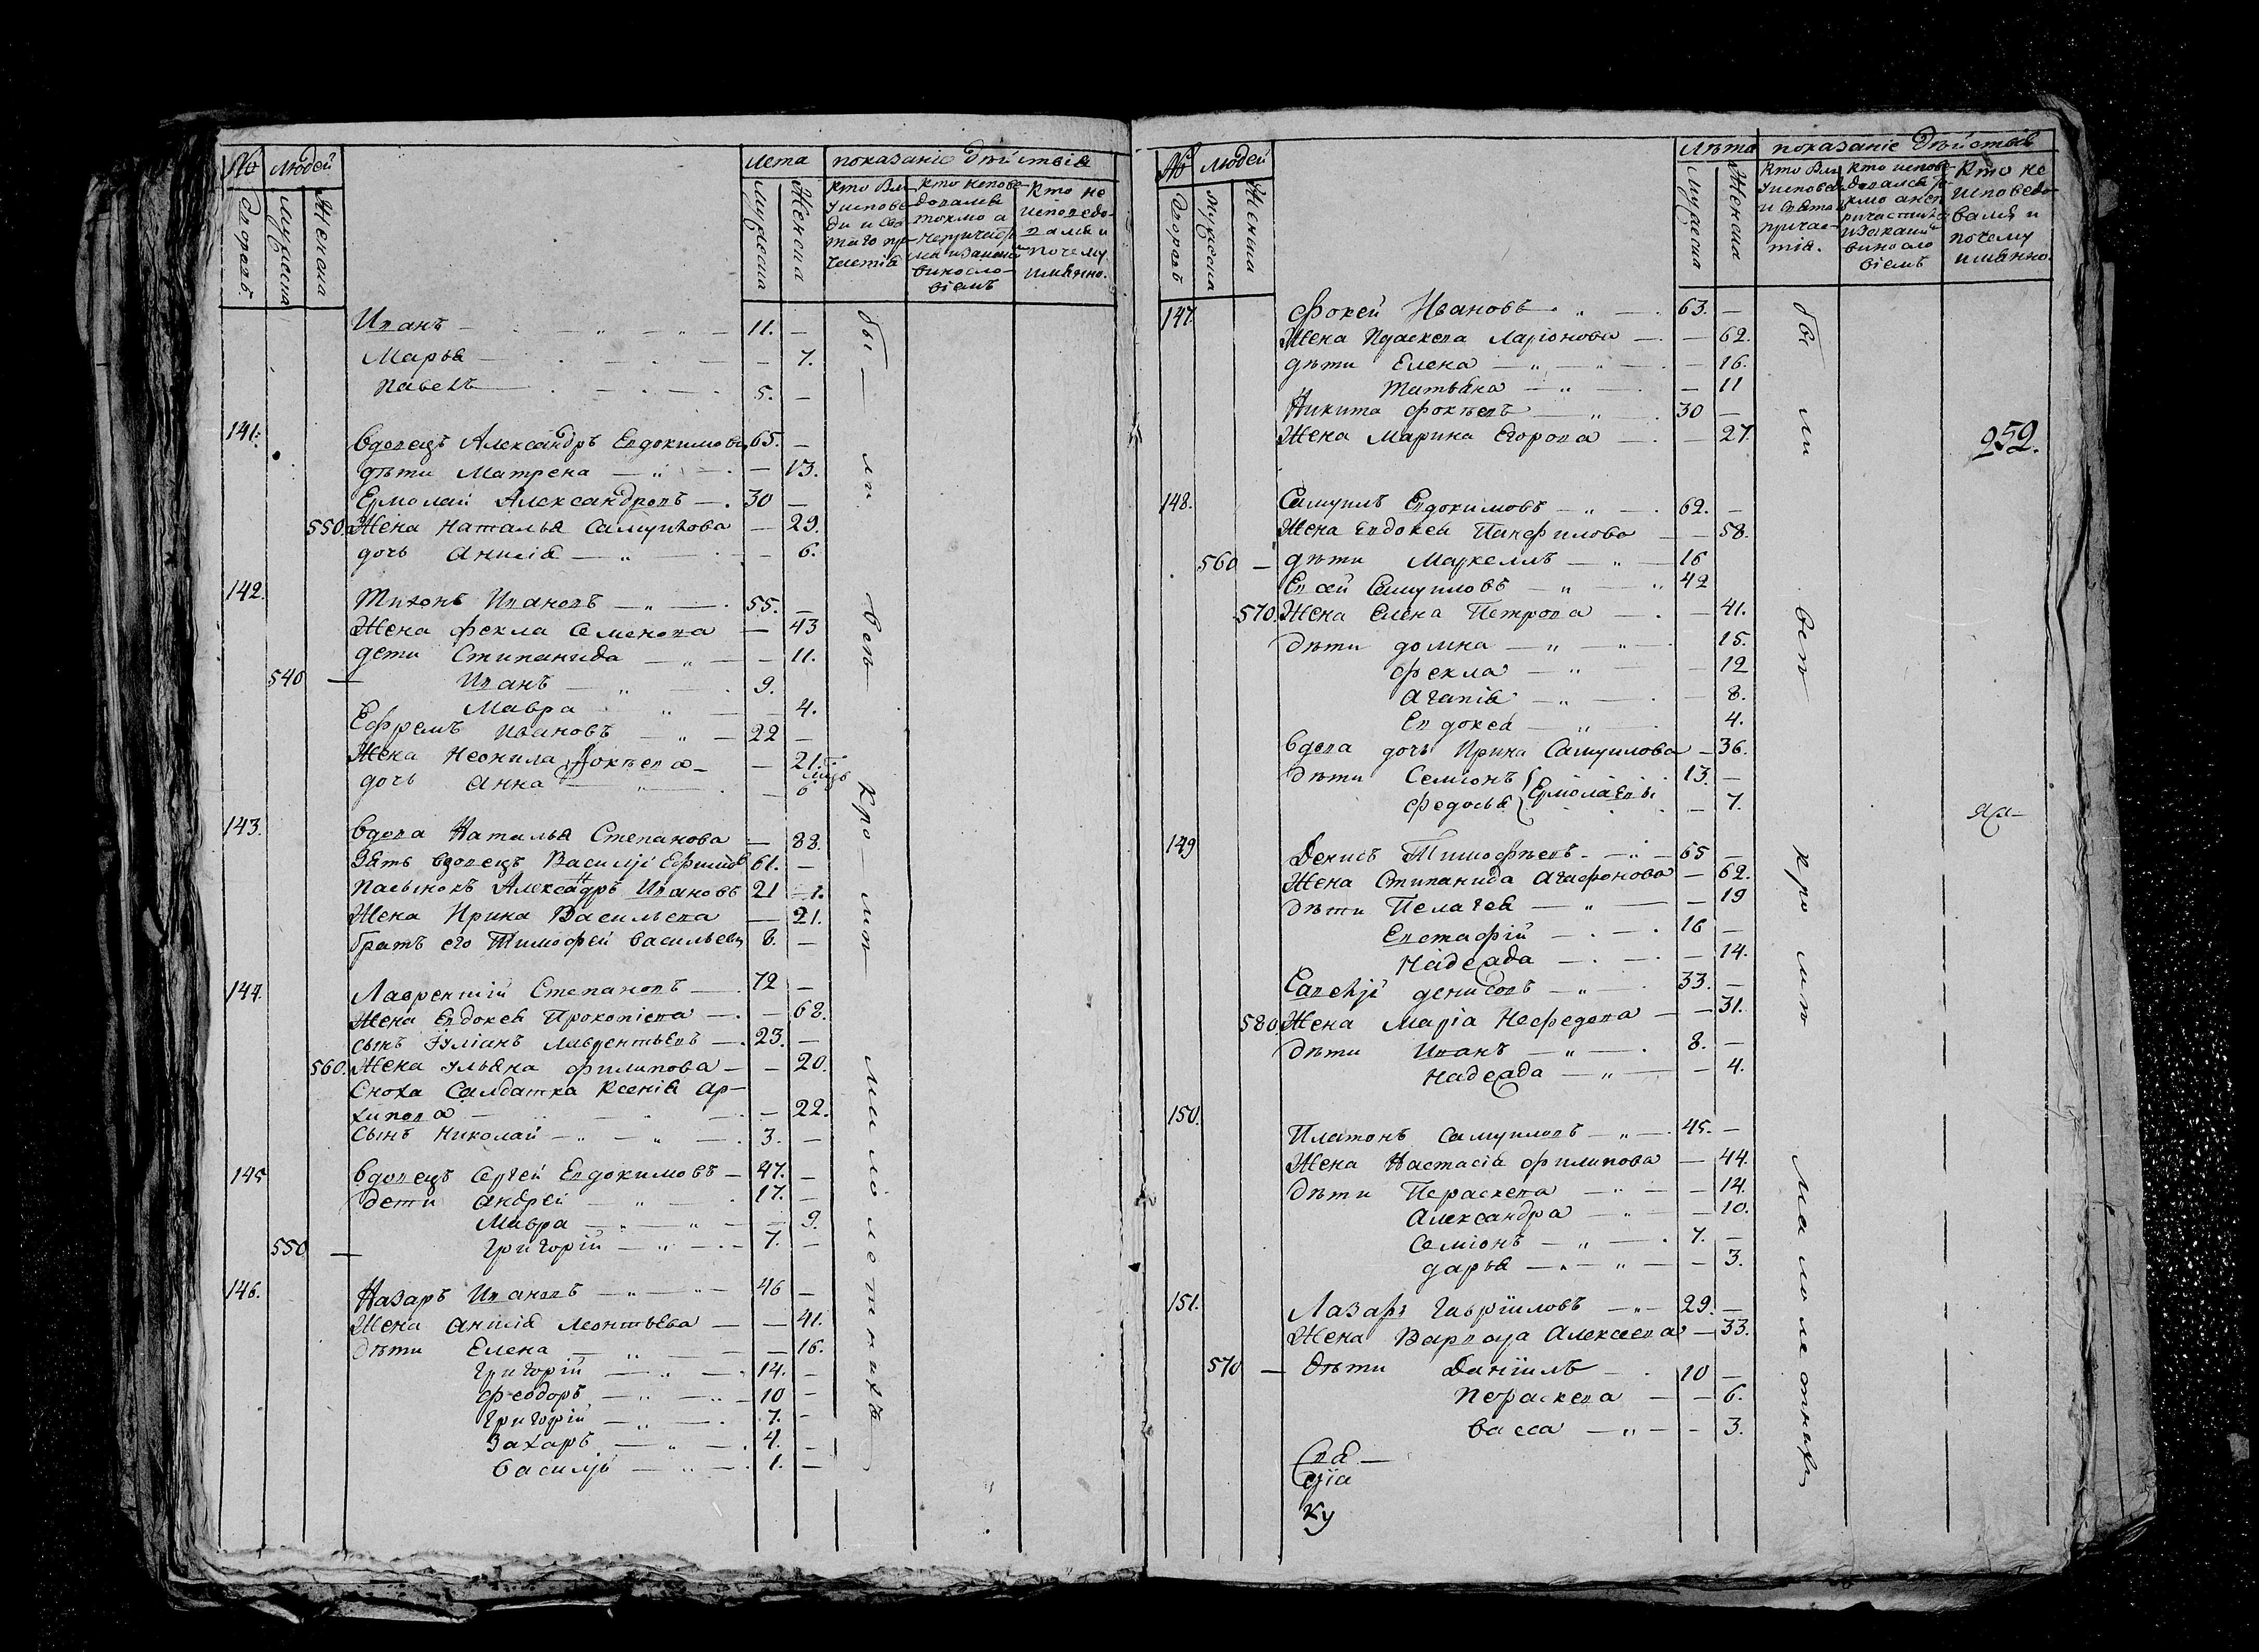 № людей лета показаніе дѣйствія
дворовъ мужеска женска мужеска женска
кто был у исповеди и святаго причастія
кто исповедовался токмо а не причастился и за каким винословіемъ
Кто не исповедовался и почему имянно.
Иванъ 11. —
Марья — 7.
Павелъ 5. —
141. вдовецъ Александръ Евдокимовъ 65. —
дѣти Матрена — 13.
Ермолай Александровъ 30 —
550. Жена Наталья Самуилова — 29.
дочь Анисія — 6.
142. Тихонъ Ивановъ 55. —
Жена Фекла Семенова — 43
дети Стипанида — 11.
540 — Иванъ 9.
Мавра — 4.
Ефремъ Ивановъ 22 —
Жена Неонила Фокѣева — 21.
дочь Анна — 6
143. вдова Наталья Степанова — 88.
Зять вдовецъ Василій Ефимовъ 61. —
Пасынокъ Александръ Ивановъ 21
Жена Ирина Васильева — 21.
братъ его Тимофей Васильевъ 8. —
144. Лаврентій Степановъ 72 —
Жена Евдокея Прокопіева — 68.
сынъ Іуліанъ Лаврентьевъ 23. —
560. Жена Ульяна Филипова — 20.
Сноха Салдатка Ксенія Ар-
хипова — 22.
Сынъ Николай 3. —
145 вдовецъ Сергей Евдокимовъ 47. —
дети Андрей 17. —
Мавра — 9.
550 — Григорій 7. —
146. Назаръ Ивановъ 46 —
Жена Анисія Леонтьева — 41.
дѣти Елена — 16.
Григорій 14. —
Феодоръ 10 —
Григорій 7. —
Захаръ 4. —
Василій 1. —
бы — ли — всѣ — кро — мѣ — ми ло летнихъ
№ людей Лѣта показаніе дѣйствія
дворовъ мужеска женска мужеска женска
кто был у исповеди и святаго причастія.
кто исповедовался токмо а не причастился и за каким винословіемъ
Кто не исповедовался и почему имянно.
147. Фокей Ивановъ 63. —
Жена Праскева Ларіонова — 62.
дѣти Елена — 16.
Татьяна — 11
Никита Фокѣевъ 30 —
Жена Марина Егорова — 27.
252.
148. Самуилъ Евдокимовъ 62. —
Жена Евдокея Панфилова — 58.
560 — дѣти Маркеллъ 16
Евсей Самуиловъ 42
570. Жена Елена Петрова — 41.
дѣти домна 15.
Фекла — 12
Агапія — 8.
Евдокея 4.
вдова дочь Ирина Самуилова — 36.
дѣти Семіонъ 13. —
Федосья } Ермолаевы — 7.
149 Денисъ Тимофѣевъ 65 —
Жена Стипанида Агафонова — 62.
дѣти Пелагея — 19
Евстафій 16 —
Надежда — 14.
Савелій денисовъ 33. —
580. Жена Марія Нефедова — 31.
дѣти Иванъ 8. —
Надежда — 4.
150. Платонъ Самуиловъ 45. —
Жена Настасія Филипова — 44.
дѣти Пераскева — 14.
Александра — 10.
Семіонъ 7. —
дарья — 3.
151. Лазарь Гавріиловъ 29. —
Жена Варвара Алексеева — 33.
570 — дѣти Даніилъ 10 —
Пераскева — 6.
Васса — 3.
бы ли всѣ кро мѣ ма ло летнихъ
Свя
ку